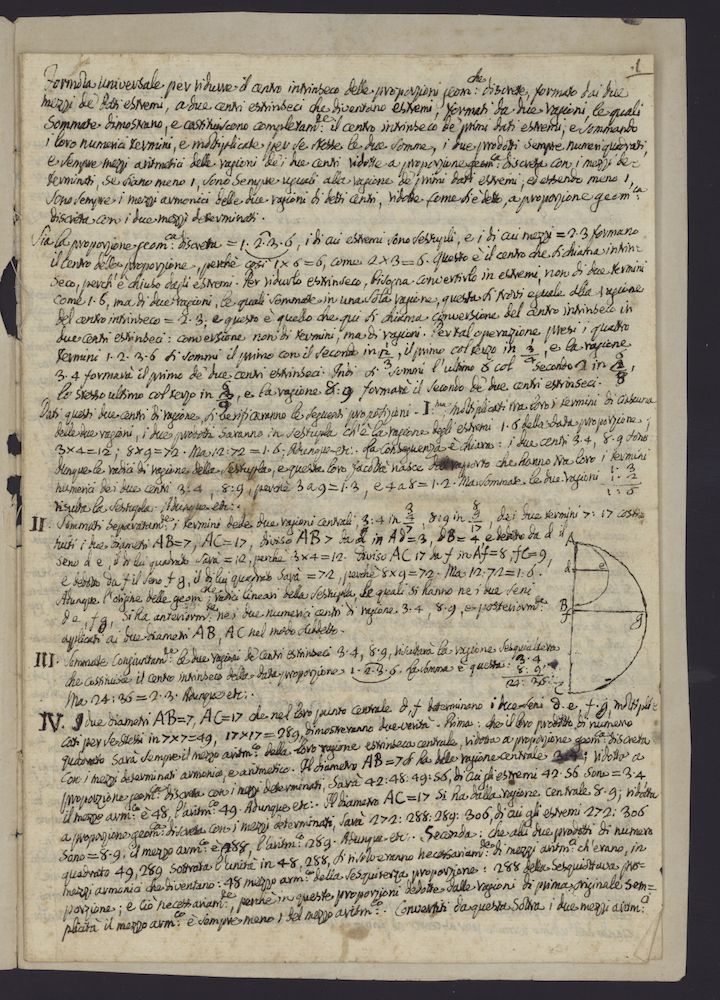 1
Formola universale per ridurre il centro intrinseco delle proporzioni geom: che discrete, formato dai due
mezzi de' dati estremi, a due centri estrinseci che diventano estremi, formati da due ragioni, le quali
sommate dimostrano, e costituiscono completam.te il centro intrinseco de' primi dati estremi, e sommando
i loro numerici termini, e multiplicate per se stesse le due somme, i due prodotti sempre numeri quadrati,
e sempre mezzi aritmetici delle ragioni de' due centri ridotte a proporzione geom.ca discreta con i mezzi de-
terminati, se siano meno 1, sono sempre uguali alla ragione de' primi dati estremi, ed essendo meno 1,
sono sempre i mezzi armonici delle due ragioni di detti centri, ridotte come si è detto, a proporzione geom.ca
discreta con i due mezzi determinati.
Sia la proporzione geom:ca discreta = 1. 2. 3. 6, i di cui estremi sono sestupli, e i di cui mezzi = 2. 3 formano
il centro della proporzione, perchè così 1 x 6 = 6, come 2 x 3 = 6. Questo è il centro che si chiama intrin-
seco, perch'è chiuso dagli estremi. Per ridurlo estrinseco, bisogna convertirlo in estremi, non di due termini
come 1. 6, ma di due ragioni, le quali sommate in una sola ragione, questa si trovi eguale alla ragione
del centro intrinseco = 2. 3; e questo è quello che qui si chiama conversione del centro intrinseco in
due centri estrinseci: conversione non di termini, ma di ragioni. Per tal operazione, presi i quattro
termini 1. 2. 3. 6 si sommi il primo con il secondo in il primo col terzo in e la ragione
3. 4 formarà il primo de' due centri estrinseci. Indi si sommi l'ultimo 6 col secondo 2 in
lo stesso ultimo col terzo in e la ragione 8: 9 formarà il secondo de' due centri estrinseci.
Dati questi due centri di ragione, si verificaranno le seguenti proposizioni - I.ma multiplicati tra loro i termini di ciascuna
delle due ragioni, i due prodotti saranno in sestupla ch'è la ragione degli estremi 1. 6 della data proporzione;
3 x 4 = 12; 8 x 9 = 72. Ma 12: 72 = 1. 6. Adunque etc: la conseguenza è chiara: i due centri 3. 4, 8. 9 sono
dunque le radici di ragione della sestupla, e questa loro facoltà nasce dal rapporto che hanno tra loro i termini
numerici dei due centri 3: 4, 8: 9, perchè 3 a 9 = 1. 3, e 4 a 8 = 1. 2. Ma sommate le due ragioni 1: 3
1: 2
risulta la sestupla: Adunque etc: 1: 6
II Sommati separatam.te i termini delle due ragioni centrali 3: 4 in 7, 8: 9 in 17, de' i due termini 7: 17 costi-
tuiti i due diametri AB = 7, AC = 17, diviso AB 7 da d in Ad = 3, dB = 4 e dedotto da d il
seno d e, il di lui quadrato sarà = 12, perchè 3 x 4 = 12. Diviso AC 17 da f in Af = 8, fC = 9,
e dedotto da f il seno f g, il di lui quadrato sarà = 72, perchè 8 x 9 = 72. Ma 12: 72 = 1. 6.
Adunque l'origine delle geom.che radici lineari della sestupla, le quali si hanno ne' i due seni
d e, f g, si ha anteriorm.te ne' i due numerici centri di ragione 3. 4, 8. 9, e posteriorm.te
applicati ai due diametri AB, AC nel modo suddetto.
A
d e
B
f g
C
III Sommate congiuntam.te le due ragioni de' centri estrinseci 3. 4, 8. 9, risultarà la ragione sesquialtera
che costituisce il centro intrinseco della data proporzione 1. 2. 3. 6. La somma è questa: 3. 4
8: 9
Ma 24: 36 = 2. 3. Adunque etc: 24: 36
IV. I due diametri AB = 7, AC = 17 che nel loro punto centrale d, f determinano i due seni d e, f g, multipli-
cati per se stessi in 7 x 7 = 49, 17 x 17 = 289, dimostreranno due verità. Prima: che il loro prodotto di numero
quadrato sarà sempre il mezzo aritm.co della loro ragione estrinseca centrale, ridotta a proporzione geom.ca discreta
con i mezzi determinati armonico, e aritmetico. Il diametro AB = 7 si ha dalla ragione centrale 3: 4; ridotta a
proporzione geom.ca discreta con i mezzi determinati, sarà 42: 48: 49: 56, di cui gli estremi 42. 56 sono = 3. 4
il mezzo arm.co è 48, l'aritm.co 49. Adunque etc: Il diametro AC = 17 si ha dalla ragione centrale 8: 9; ridotta
a proporzione geom.ca discreta con i mezzi determinati, sarà 272: 288: 289: 306, di cui gli estremi 272: 306
sono = 8. 9. il mezzo arm.co è 288, l'aritm.co 289. Adunque etc: Seconda: che alli due prodotti di numero
quadrato 49, 289 sottratta l'unità in 48, 288, si risolveranno necessariam.te di mezzi aritm.ci ch'erano, in
mezzi armonici che diventano: 48 mezzo arm.co della sesquiterza proporzione: 288 della sesquiottava pro-
porzione; e ciò necessariam.te, perchè in queste proporzioni dedotte dalle ragioni di prima originale sem-
plicità il mezzo arm.co è sempre meno 1 del mezzo aritm.co. Convertiti da questa sottra i due mezzi aritm.ci